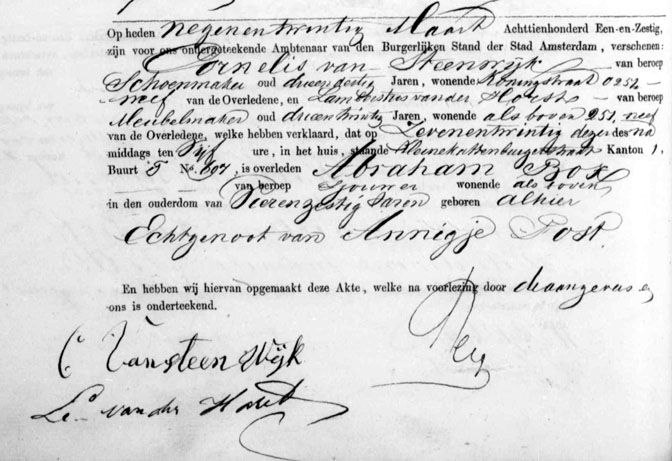 Op heden negenentwintig Maart Achttienhonderd Een-en-Zestig,
zijn voor ons ondergeteekende Ambtenaar van den Burgerlijken Stand der Stad Amsterdam, verschenen:
Cornelis van Steenwijk van beroep
Schoenmaker oud drieendertig Jaren, wonende Koningstraat 0252
neef van de Overledene, en Lambertus van der Horst van beroep
Meubelmaker oud drieentwintig Jaren, wonende als boven 251, neef
van de Overledene, welke hebben verklaard, dat op Zevenentwintig dezer des na
middags ten Vijf ure, in het huis, staande Kleinekattenburgerstraat Kanton 1,
Buurt No. 607, is overleden Abraham Box
van beroep Sjouwer wonende als boven
in den ouderdom van Vierenzestig Jaren geboren alhier
Echtgenoot van Annigje Post.
En hebben wij hiervan opgemaakt deze Akte, welke na voorlezing door de aangevers en
ons is onderteekend.
C Van Steenwijk
L. van der Horst